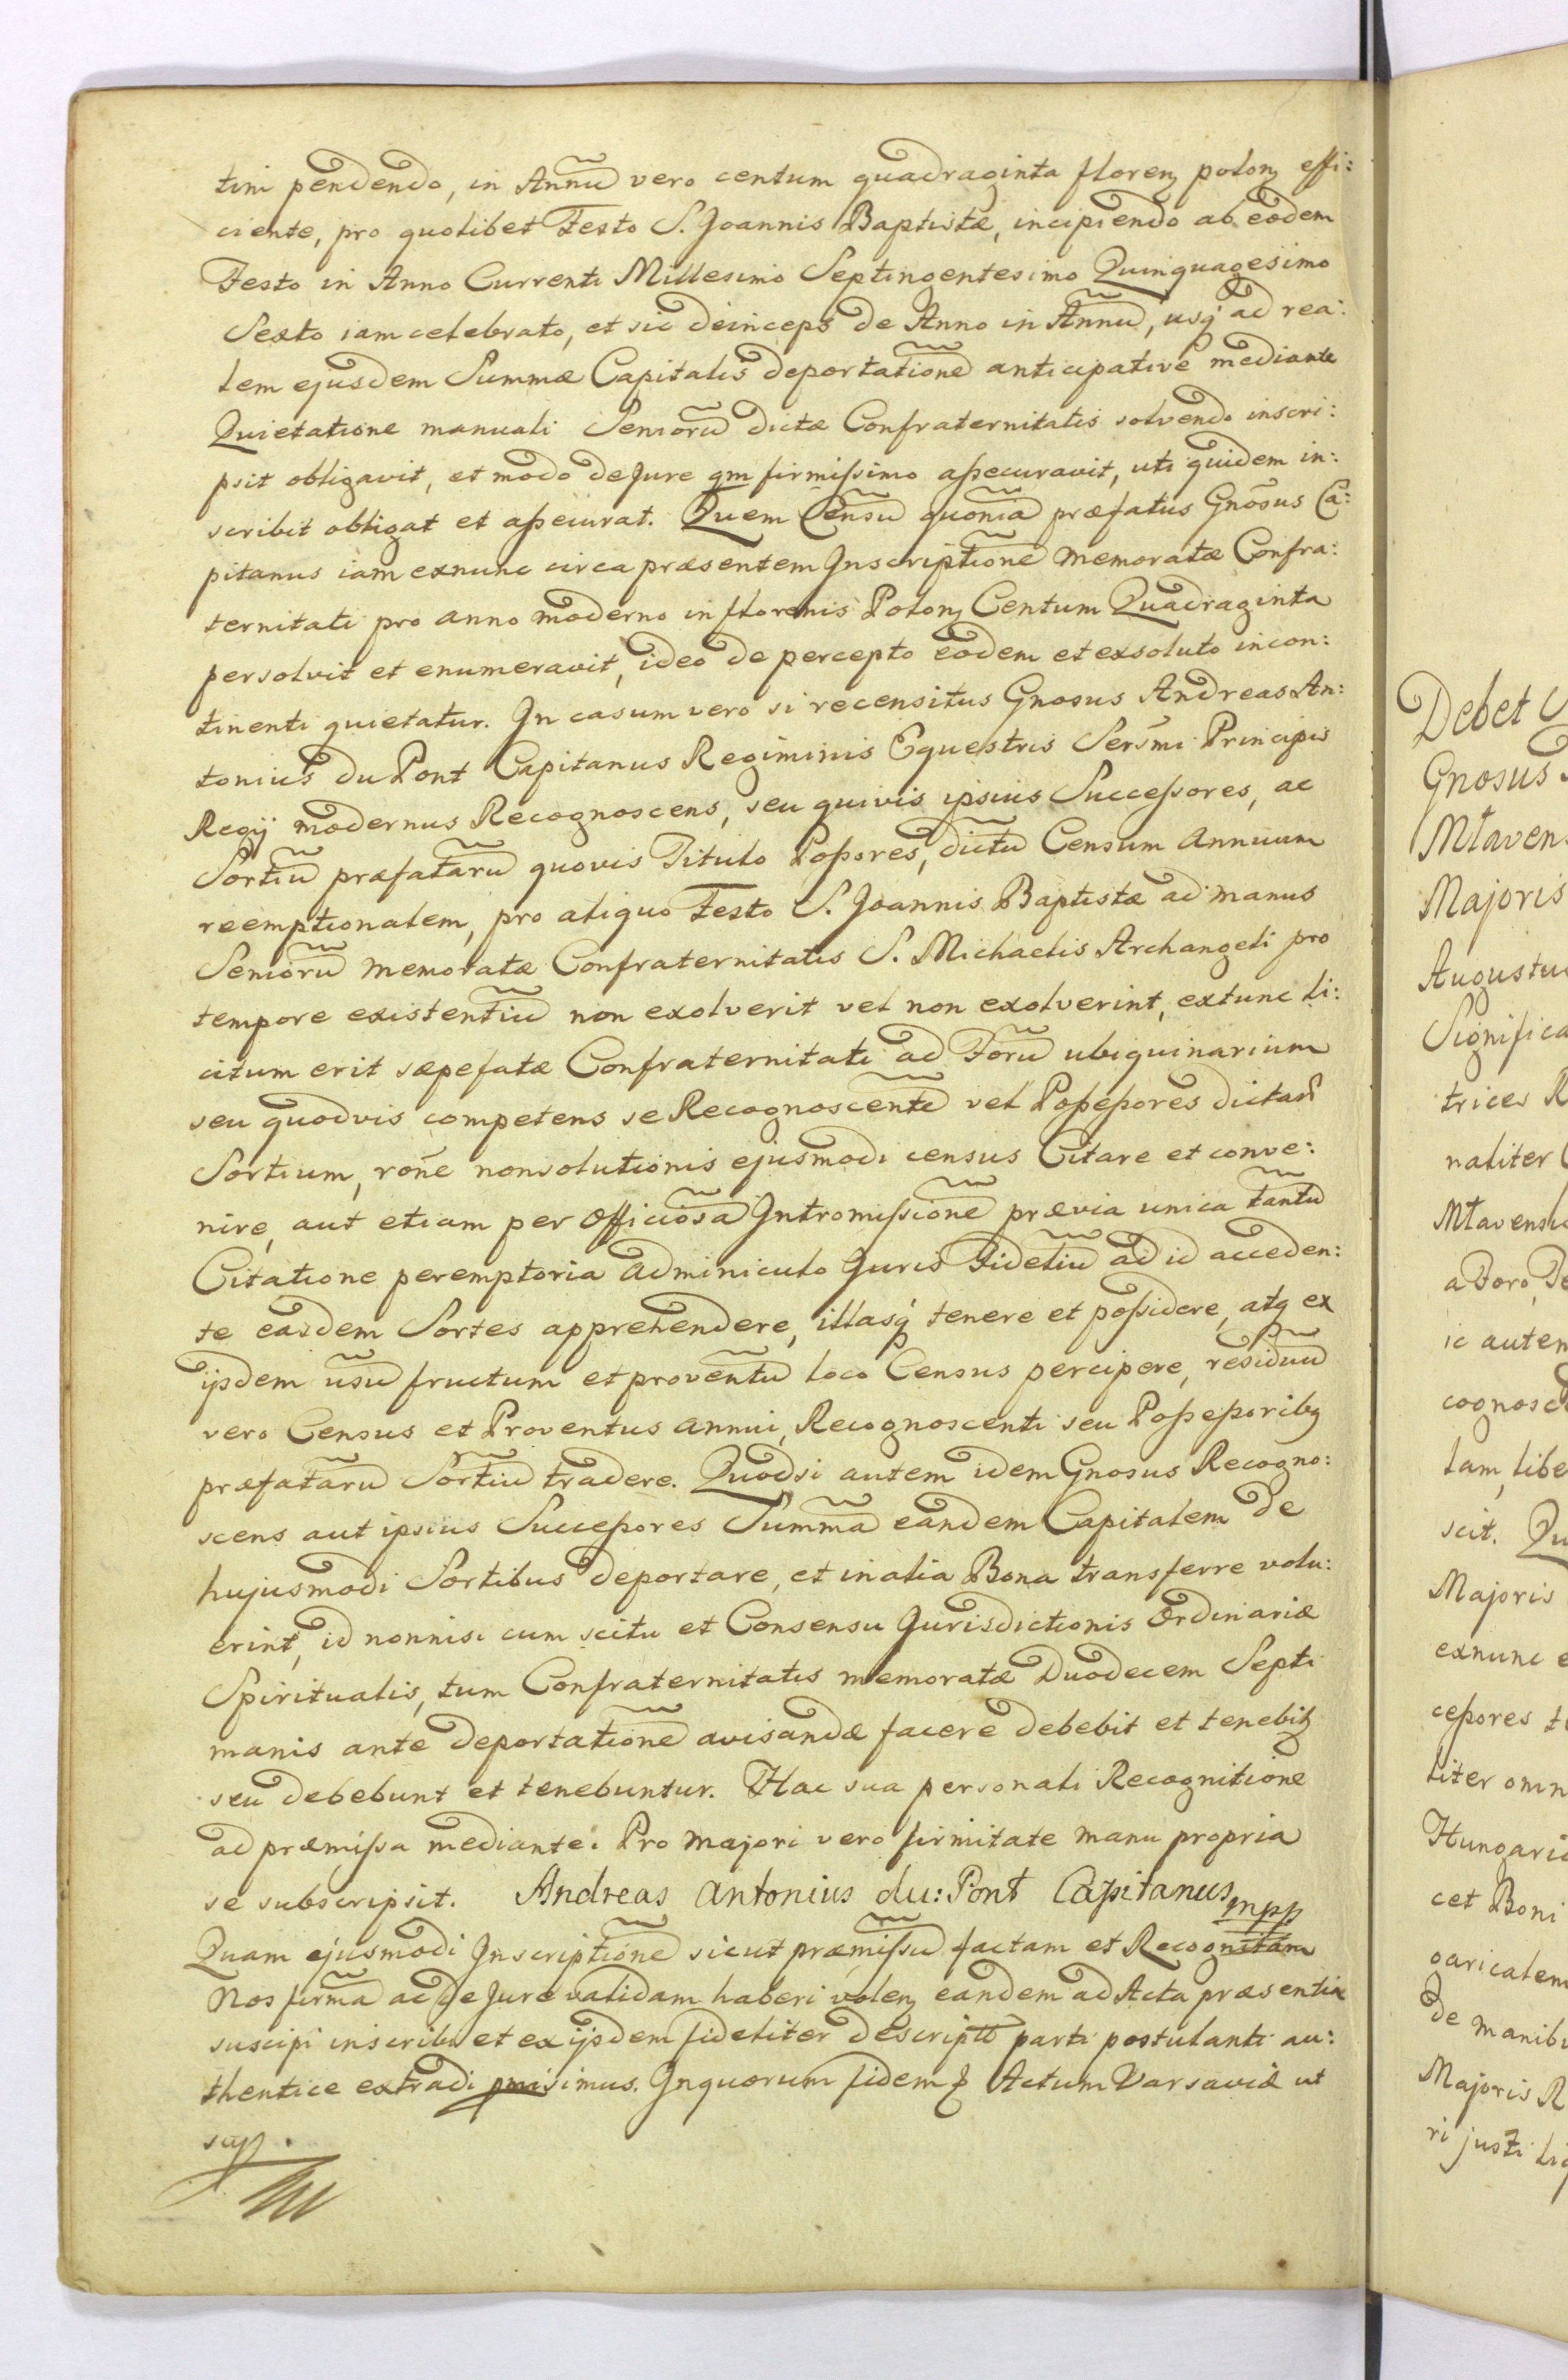 tim pendendo, in Annũ vero centum quadraginta floren polon effi:
ciente, pro quolibet Festo S. Joannis Baptistæ, incipiendo ab eodem
Festo in Anno Currenti Millesimo Septingentesimo Quinquagesimo
Sexto iam celebrato, et sic deinceps de Anno in Annũ, usq ad rea:
lem ejusdem Summæ Capitalis deportationẽ anticipative mediante
Quietatione manuali Seniorũ dictæ Confraternitatis solvendo inscri:
psit obligavit, et modo de Jure qm firmissimo assecuravit, uti quidem in:
scribit obligat et assecurat. Quem Censũ quoniã præfatus Gnõsus Ca:
pitanus iam exnunc circa præsentem Inscriptionẽ memoratæ Confra:
ternitati pro anno moderno in florenis Polon Centum Quadraginta
persolvit et enumeravit, ideo de percepto eodem et exsoluto incon:
tinenti quietatur. In casum vero si recensitus Gnosus Andreas An:
tonius du Pont Capitanus Regiminis Equestris Serñmi Principis
Regij modernus Recognoscens, seu quivis ipsius Successores, ac
Sortiũ præfatarũ quovis Titulo Possores, dictũ Censum annuum
reemptionalem, pro aliquo Festo S. Joannis Baptistæ ad manus
Seniorũ memoratæ Confraternitatis S. Michaelis Archangeli pro
tempore existentiũ non exolverit vel non exolverint, extunc li:
citum erit sæpefatæ Confraternitati ad Forũ ubiquinarium
seu quodvis competens se Recognoscentẽ vel Possessores dictarũ
Sortium, rõne nonsolutionis ejusmodi census Citare et conve:
nire, aut etiam per officiosã Intromissionẽ prævia unica tantũ
Citatione peremptoria adminiculo Juris Fideliũ ad id acceden:
te easdem Sortes apprehendere, illasq tenere et possidere, atq ex
ijsdem usũ fructum et proventũ loco Census percipere, residuũ
vero Census et Proventus annui, Recognoscenti seu Possessoribq
præfatarũ Sortiũ tradere. Quodsi autem idem Gnosus Recogno:
scens aut ipsius Successores Summã eandem Capitalem de
hujusmodi Sortibus deportare, et in alia Bona transferre volu:
erint, id nonnisi cum scitu et Consensu Jurisdictionis Ordinariæ
Spiritualis, tum Confraternitatis memoratæ Duodecem Septi
manis ante deportationẽ avisandæ facere debebit et tenebit
seu debebunt et tenebuntur. Hac sua personali Recognitione
ad præmissa mediante. Pro majori vero firmitate manu propria
se subscripsit. Andreas Antonius du: Pont Capitanus mpp
Quam ejusmodi Inscriptionẽ sicut præmissũ factam et Recognitam
Nos firmã ac de Jure validam haberi volen eandem ad Acta præsentia
suscipi inscribi et ex ijsdem fideliter descriptã parti postulanti au:
thentice extradi pmisimus. In quorum fidem & Actum Varsaviæ ut
sup.
Debet
Gnosus
Mtaven
Majoris
Augustu
Significa
trices R
naliter
Mtavens
a Foro, De
ic autem
cognosce
tam, libe
scit. Qu
Majoris
exnunc e
cessores t
liter omn
Hungari
cet Boni
garicalem
de manibu
Majoris R
ri justi li